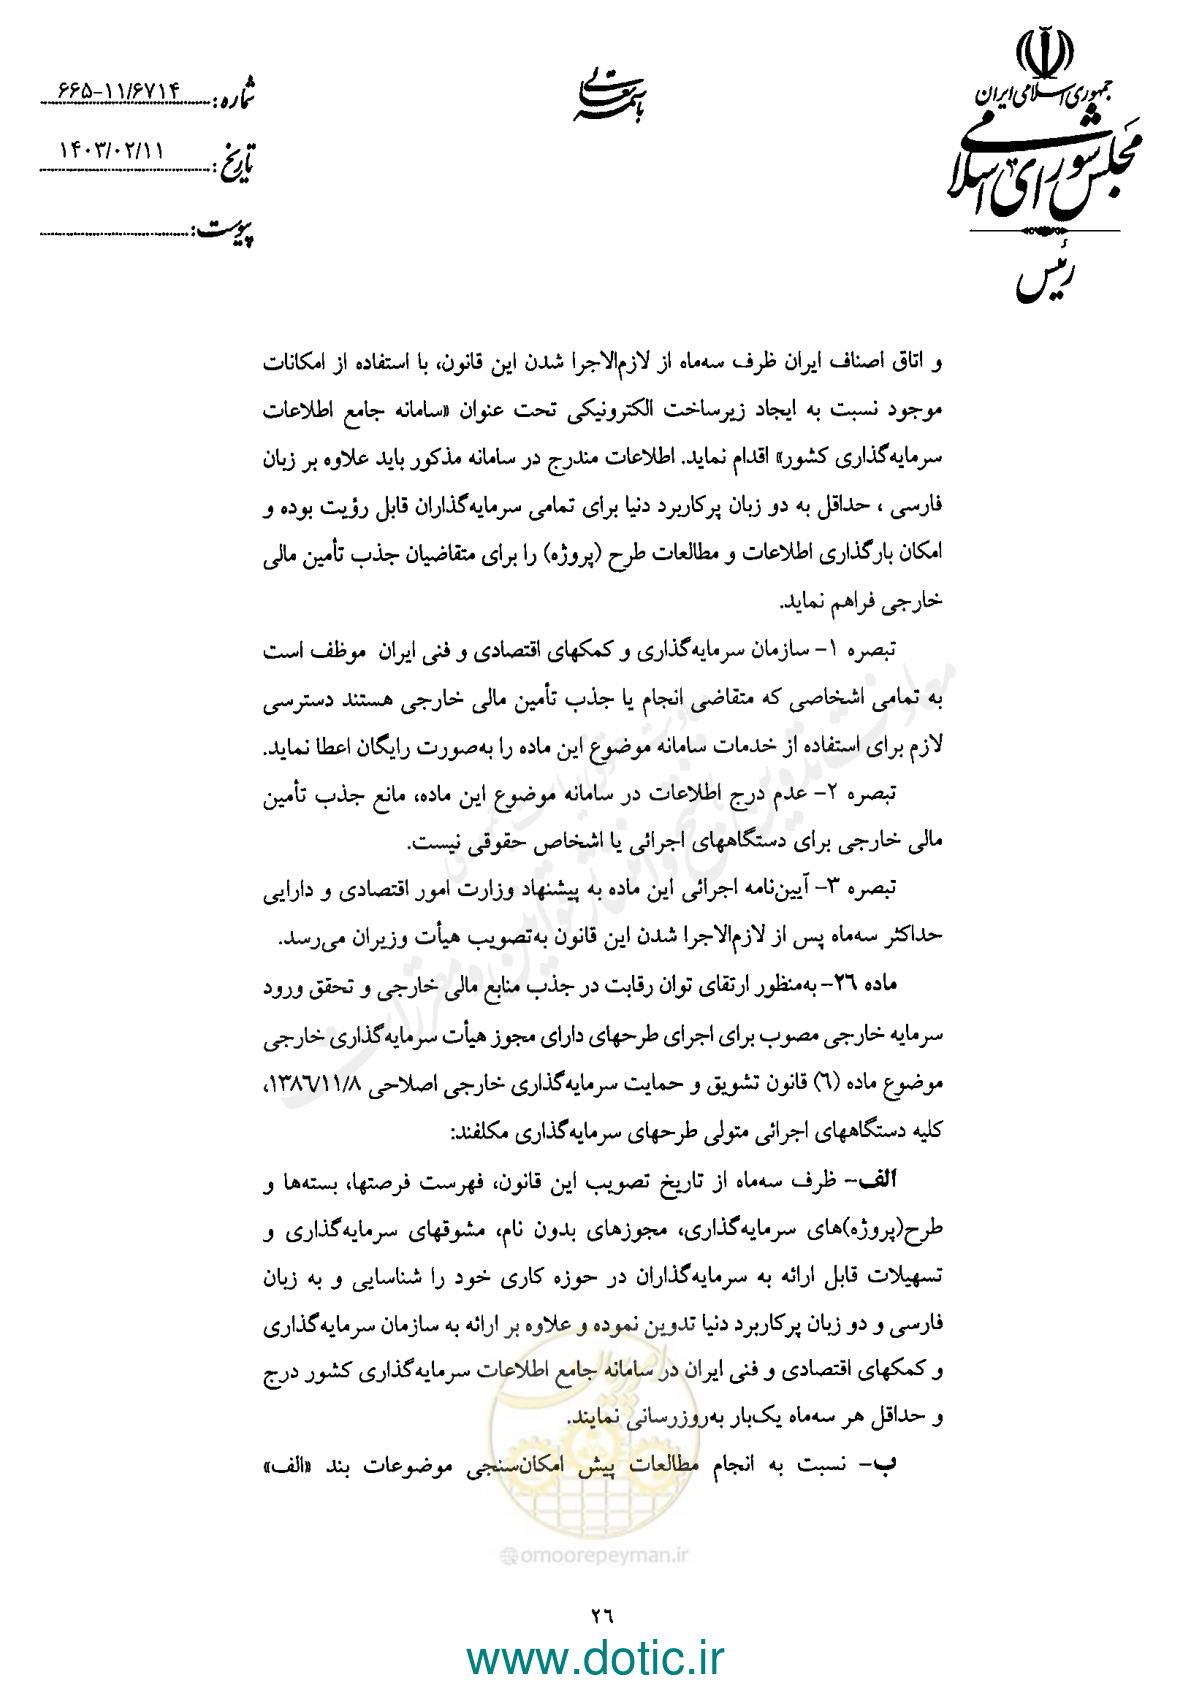 جمهوری اسلامی ایران
مجلس شورای اسلامی
رئیس
باسمه تعالی
شماره: ۶۶۵-۱۱/۶۷۱۴
تاریخ: ۱۴۰۳/۰۲/۱۱
پیوست:
و اتاق اصناف ایران ظرف سه‌ماه از لازم‌الاجرا شدن این قانون، با استفاده از امکانات
موجود نسبت به ایجاد زیرساخت الکترونیکی تحت عنوان «سامانه جامع اطلاعات
سرمایه‌گذاری کشور» اقدام نماید. اطلاعات مندرج در سامانه مذکور باید علاوه بر زبان
فارسی ، حداقل به دو زبان پرکاربرد دنیا برای تمامی سرمایه‌گذاران قابل رؤیت بوده و
امکان بارگذاری اطلاعات و مطالعات طرح (پروژه) را برای متقاضیان جذب تأمین مالی
خارجی فراهم نماید.
تبصره ۱- سازمان سرمایه‌گذاری و کمکهای اقتصادی و فنی ایران موظف است
به تمامی اشخاصی که متقاضی انجام یا جذب تأمین مالی خارجی هستند دسترسی
لازم برای استفاده از خدمات سامانه موضوع این ماده را به‌صورت رایگان اعطا نماید.
تبصره ۲- عدم درج اطلاعات در سامانه موضوع این ماده، مانع جذب تأمین
مالی خارجی برای دستگاههای اجرائی یا اشخاص حقوقی نیست.
تبصره ۳- آیین‌نامه اجرائی این ماده به پیشنهاد وزارت امور اقتصادی و دارایی
حداکثر سه‌ماه پس از لازم‌الاجرا شدن این قانون به‌تصویب هیأت وزیران می‌رسد.
ماده ۲۶- به‌منظور ارتقای توان رقابت در جذب منابع مالی خارجی و تحقق ورود
سرمایه خارجی مصوب برای اجرای طرحهای دارای مجوز هیأت سرمایه‌گذاری خارجی
موضوع ماده (۶) قانون تشویق و حمایت سرمایه‌گذاری خارجی اصلاحی ۱۳۸۶/۱۱/۸،
کلیه دستگاههای اجرائی متولی طرحهای سرمایه‌گذاری مکلفند:
الف- ظرف سه‌ماه از تاریخ تصویب این قانون، فهرست فرصتها، بسته‌ها و
طرح(پروژه)های سرمایه‌گذاری، مجوزهای بدون نام، مشوقهای سرمایه‌گذاری و
تسهیلات قابل ارائه به سرمایه‌گذاران در حوزه کاری خود را شناسایی و به زبان
فارسی و دو زبان پرکاربرد دنیا تدوین نموده و علاوه بر ارائه به سازمان سرمایه‌گذاری
و کمکهای اقتصادی و فنی ایران در سامانه جامع اطلاعات سرمایه‌گذاری کشور درج
و حداقل هر سه‌ماه یک‌بار به‌روزرسانی نمایند.
ب- نسبت به انجام مطالعات پیش امکان‌سنجی موضوعات بند «الف»
امور پیمان
@omoorepeyman.ir
۲۶
www.dotic.ir